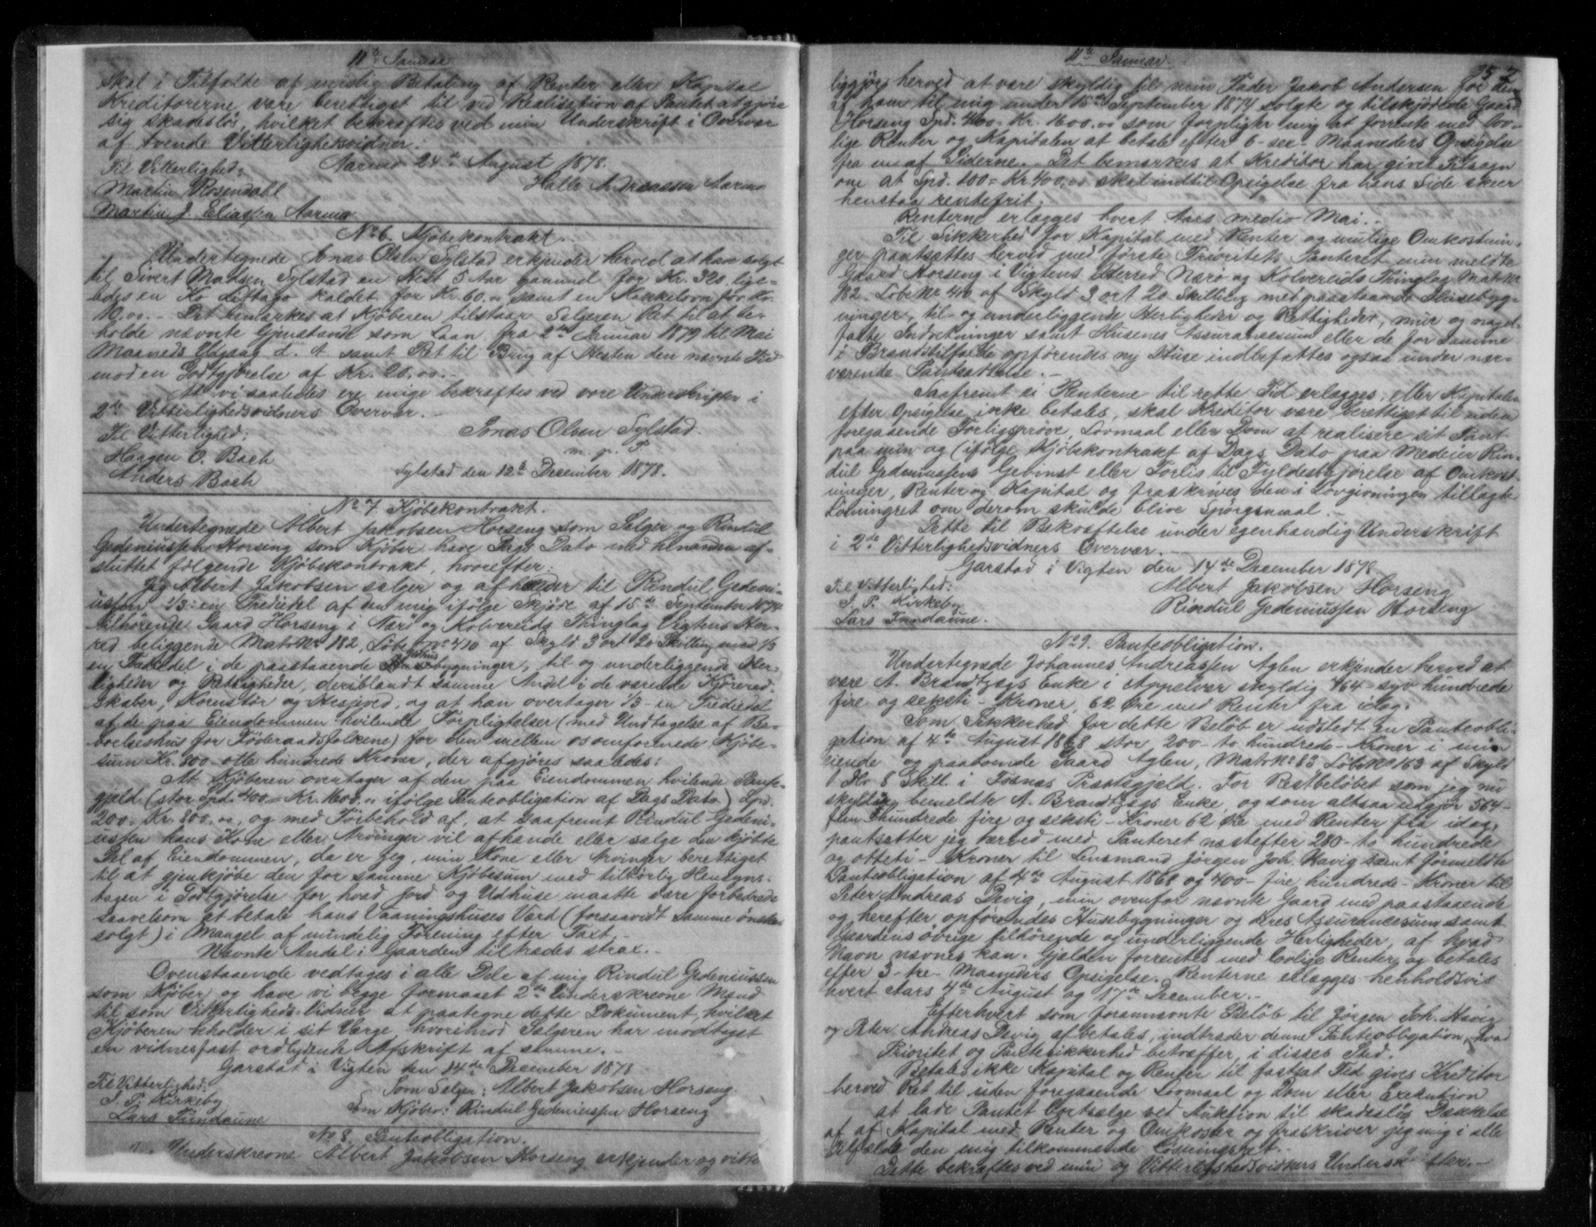 11te Januar
skal i Tilfælde af uvillig Betaling af Renter eller Kapital
Kreditorerne være berettiget til ved Realisation af Pantet at gjøre
sig skadesløs, hvilket bekræftes ved min Underskrift i Overvær
af tvende Vitterlighedsvidner.
Aarmo 24de August 1878.
Til Vitterlighed:
Halle Andreassen Aarmo
Martin Rosendahl
Martin J. Eliassen Aarmo
No 6. Kjøbekontrakt.
Undertegnede Jonas Olsen Sylstad erkjender herved at have solgt
til Sivert Matsen Sylstad en Hest 5 Aar gammel for Kr. 320. lige-
ledes en Ko kaldet for Kr. 60.00 samt en Kakkelovn for Kr.
10.00. - Det bemærkes at Kjøberen tilstaar Sælgeren Ret til at be-
holde nævnte Gjenstande som Laan fra 2den Januar 1879 til Mai
Maaneds Udgang d. A. samt Ret til Brug af Hesten den nævnte Tid
mod en Godtgjørelse af Kr. 20.00.-
At vi saaledes ere enige bekræftes ved vore Underskrifter i
2de Vitterlighedsvidners Overvær.-
Til Vitterlighed:
Jonas Olsen Sylstad
m. p. P.
Haagen O. Bach
Sylstad den 12te December 1878.
Anders Bach
No 7. Kjøbekontrakt.
Undertegnede Albert Jakobsen Horseng som Sælger og Rindul
Gedeniussen Horseng som Kjøber have Dags Dato med hinanden af-
sluttet følgende Kjøbekontrakt, hvorefter:
Jeg Albert Jakobsen sælger og afhænder til Rindul Gedeni-
ussen 1/3 en Trediedel af den mig ifølge Skjøde af 15de September 1874
tilhørende Gaard Horseng i Nærø og Kolvereids Thinglag Vigtens Her-
red beliggende Matr. No 182, Løbe No 410 af Skyld 3 ort 20 Skilling med 1/3
en Trediedel i de paastaaende Husebygninger, til og underliggende Her-
ligheder og Rettigheder, deriblandt samme Andel i de værende Kjørered-
skaber, Kornstør og Hesjeved, og at han overtager 1/3 en Trediedel
af de paa Eiendommen hvilende Forpligtelser (med Undtagelse af Be-
boelseshus for Føderaadsfolkene) for den mellem os omforenede Kjøbe-
sum Kr. 800 otte hundrede Kroner, der afgjøres saaledes:
At Kjøberen overtager af den paa Eiendommen hvilende Pante-
gjæld (stor Spd. 400 = Kr. 1600.00 ifølge Panteobligation af Dags Dato) Spd.
200 = Kr. 800.00, og med Forbehold af, at saafremt Rindul Gedeni-
ussen hans Kone eller Arvinger vil afhænde eller sælge den kjøbte
Del af Eiendommen, da er jeg, min Kone eller Arvinger berettiget
til at gjenkjøbe den for samme Kjøbesum med tilbørlig Hensyns-
tagen i Godtgjørelse for hvad Jord og Udhuse maatte være forbedrede
saavelsom at betale hans Vaaningshuses Værd (forsaavidt samme ønskes
solgt) i Mangel af mindelig Forening efter Taxt.
Nævnte Andel i Gaarden tiltrædes strax.-
Ovenstaaende vedtages i alle Dele af mig Rindul Gedeniussen
som Kjøber og have vi begge formaaet 2de Underskrevne Mænd
til som Vitterligheds Vidner at paategne dette Dokument, hvilket
Kjøberen beholder i sit Værge, hvorimod Sælgeren har modtaget
en vidnesfast ordlydende Afskrift af samme.-
Garstad i Vigten den 14de December 1878
Til Vitterlighed:
Som Sælger: Albert Jakobsen Horseng.
J. P. Kirkeby
Som Kjøber: Rindul Gedeniussen Horseng
Lars Fundaune
No 8. Panteobligation.
Underskrevne Albert Jakobsen Horseng erkjender og vitter-
11te Januar.
257
liggjør herved at være skyldig til min Fader Jakob Andersen for den
af ham til mig under 15de September 1874 solgte og tilskjødede Gaard
Horseng Spd. 400 = Kr. 1600.00 som forpligter mig at forrente med lov-
lige Renter og Kapitalen at betale efter 6 sex Maaneders Opsigelse
fra en af Siderne. Det bemærkes at Kreditor har givet Tilsagn
om at Spd. 100 = Kr. 400.00 skal indtil Opsigelse fra hans Side skeer
henstaa rentefrit.
Renterne erlægges hvert Aars medio Mai.-
Til Sikkerhed for Kapital med Renter og mulige Omkostnin-
ger pantsættes herved med første Prioritets Panteret min meldte
Gaard Horseng i Vigtens Herred Nærø og Kolvereids Thinglag Matr. No
182. Løbe No 410 af Skyld 3 ort 20 Skilling med paastaaende Husebyg-
ninger, til- og underliggende Herligheder og Rettigheder, mur og nagel-
faste Indretninger samt Husenes Assurancesum eller de for samme
i Brandstilfælde opførendes ny Huse indbefattes ogsaa under nær-
værende Panthæftelse.-
Saafremt ei Renterne til rette Tid erlægges, eller Kapitalen
efter Opsigelse ikke betales, skal Kreditor være berettiget til uden
foregaaende Forligsprøve, Lovmaal eller Dom at realisere sit Pant
paa min og (ifølge Kjøbekontrakt af Dags Dato paa Medeier Rin-
dul Gedeniussens Gevinst eller Forlis til Fyldestgjørelse af Omkost-
ninger, Renter og Kapital og fraskrives den i Lovgivningen tillagte
Løsningsret om derom skulde blive Spørgsmaal.-
Dette til Bekræftelse under egenhændig Underskrift
i 2de Vitterlighedsvidners Overvær.-
Garstad i Vigten den 14de December 1878
Til Vitterlighed:
Albert Jakobsen Horseng
J. P. Kirkeby
Rindul Gedeniussen Horseng
Lars Fundaune.
No 9. Panteobligation.
Undertegnede Johannes Andreassen Aglen erkjender herved at
være A. Brandtzægs Enke i Appelvær skyldig 764 syv hundrede
fire og seksti - Kroner, 62 Øre med Renter fra idag.
Som Sikkerhed for dette Beløb er udstedt en Panteobli-
gation af 4de August 1868 stor 200 - to hundrede - Kroner i min
eiende og paaboende Gaard Aglen, Matr. No 83 Løbe No 163 af Skyld
1 Dlr. 8 Skill. i Fosnæs Præstegjeld. For Restbeløbet som jeg nu
skylder bemeldte A. Brandtzægs Enke, og som altsaa udgjør 564 -
fem hundrede fire og seksti - Kroner 62 Øre med Renter fra idag,
pantsætter jeg herved med Panteret næstefter 280 - to hundrede
og otteti - Kroner til Lensmand Jørgen Joh. Havig samt førmeldte
Panteobligation af 4de August 1868 og 400 - fire hundrede - Kroner til
Peter Andreas Devig, min ovenfor nævnte Gaard med paastaaende
og herefter opførendes Husebygninger og deres Assurancesum samt
Gaardens øvrige tilhørende og underliggende Herligheder, af hvad
Navn nævnes kan. Gjælden forrentes med lovlige Renter og betales
efter 3 - tre - Maaneders Opsigelse. Renterne erlægges henholdsvis
hvert Aars 4de August og 17de December.-
Efterhvert som forannævnte Beløb til Jørgen Joh. Havig
og Peter Andreas Devig afbetales, indtræder denne Panteobligation, hvad
Prioritet og Pantesikkerhed betræffer, i disses Sted.
Betales ikke Kapital og Renter til fastsat Tid gives Kreditor
herved Ret til uden foregaaende Lovmaal og Dom eller Execution
at lade Pantet bortsælge ved Auktion til skadesløs Dækkelse
af Kapital med Renter og Omkoster og fraskriver jeg mig i alle
Tilfælde den mig tilkommende Løsningsret.-
Dette bekræftes ved min og Vitterlighedsvidners Underskrifter.-